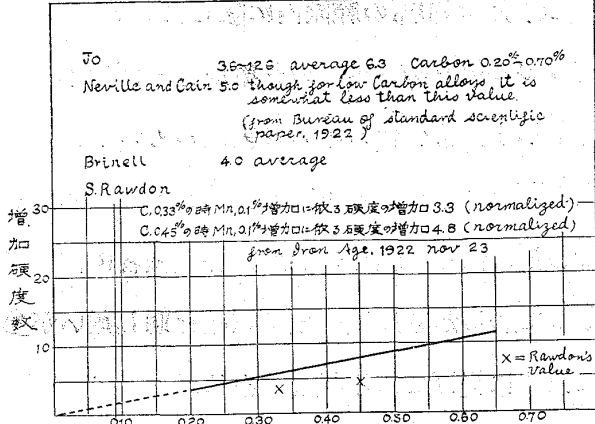 Jo 3.6~12.6 average 6.3 Carbon 0.20%~0.70%
Neville and Cain 5.0 though for low Carbon alloys it is
somewhat less than this value.
(from Bureau of standard scientific
paper. 1922)
Brinell 4.0 average
S. Rawdon
C.0.33%の時Mn,0.1%増加に依る硬度の増加3.3 (normalized)
C.0.45%の時Mn,0.1%増加に依る硬度の増加4.8 (normalized)
from Iron Age. 1922 nov 23
増加硬度数
30
20
10
× = Rawdon's
value
0.10 0.20 0.30 0.40 0.50 0.60 0.70